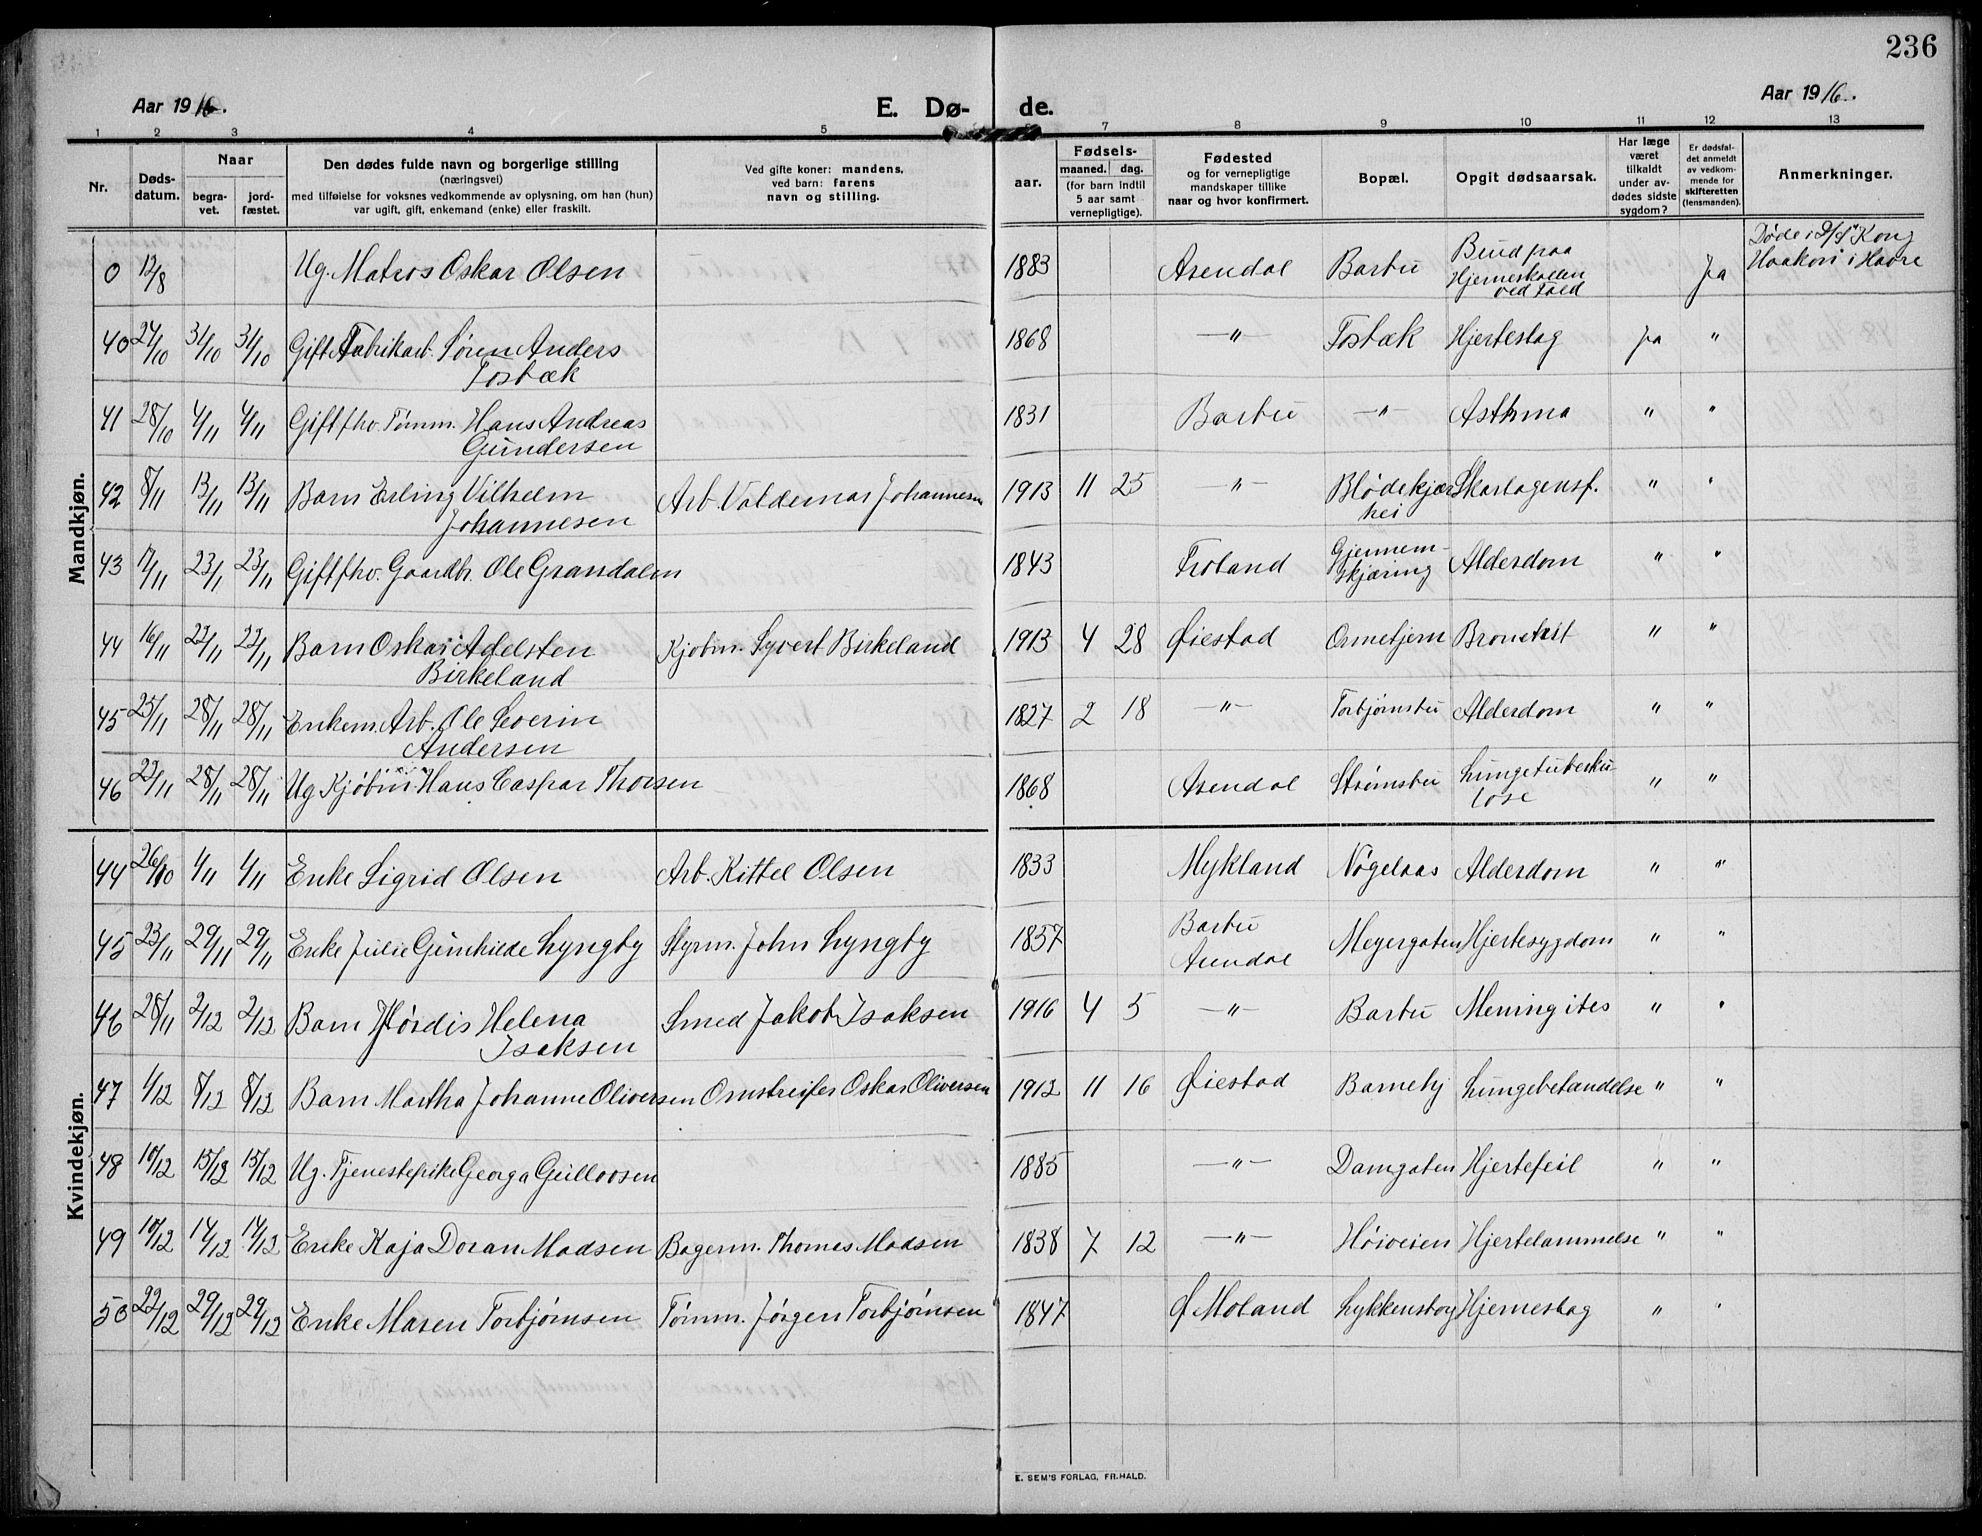 236
Aar 1916. E. Dø- de. Aar 1916.
1 2 3 4 5 7 8 9 10 11 12 13
Nr. Døds-datum. Naar begra-vet. jord-fæstet. Den dødes fulde navn og borgerlige stilling (næringsvei) med tilføielse for voksnes vedkommende av oplysning, om han (hun) var ugift, gift, enkemand (enke) eller fraskilt. Ved gifte koner: mandens, ved barn: farens navn og stilling. aar. Fødsels- maaned. dag. (for barn indtil 5 aar samt vernepligtige). Fødested og for vernepligtige mandskaper tillike naar og hvor konfirmert. Bopæl. Opgit dødsaarsak. Har læge været tilkaldt under av-dødes sidste sygdom? Er dødsfal-det anmeldt av vedkom-mende for skifteretten (lensmanden). Anmerkninger.
Mandkjøn.
0 12/8 Ug. Matros Oskar Olsen 1883 Arendal Barbu Brud paa Hjerneskallen ved Fald ja Døde i D/S "Kong Haakon" i Havre
40 27/10 31/10 31/10 Gift Fabrikarb. Søren Anders Torbæk 1868 —"— Torbæk Hjerteslag ja "
41 28/10 4/11 4/11 Gift fhv. Tømm. Hans Andreas Gundersen 1831 Barbu —"— Asthma " "
42 8/11 13/11 13/11 Barn Erling Vilhelm Johannesen Arb. Valdemar Johannesen 1913 11 25 —"— Blødekjær hei Skarlagensf. " "
43 17/11 23/11 23/11 Gift fhv. Gaardbr. Ole Grandalen 1843 Froland Gjennem-skjæring Alderdom " "
44 16/11 22/11 22/11 Barn Oskar Adelsten Birkeland Kjøbm. Syvert Birkeland 1913 4 28 Øiestad Ormetjern Bronchit " "
45 25/11 28/11 28/11 Enkem. Arb. Ole Severin Andersen 1827 2 18 —"— Torbjørnsbu Alderdom " "
46 22/11 28/11 28/11 Ug Kjøbm. Hans Caspar Thorsen 1868 Arendal Strømsbu Lungetuberku-lose " "
Kvindekjøn.
44 26/10 4/11 4/11 Enke Sigrid Olsen Arb. Kittel Olsen 1833 Mykland Nøgelaas Alderdom " "
45 23/11 29/11 29/11 Enke Julie Gunhilde Lyngby Styrm. John Lyngby 1857 Barbu Arendal Meyergaten Hjertesygdom " "
46 28/11 2/12 2/12 Barn Hjørdis Helena Isaksen Smed Jakob Isaksen 1916 4 5 —"— Barbu Meningites " "
47 4/12 8/12 8/12 Barn Martha Johanne Oliversen Omstreifer Oskar Oliversen 1912 11 16 Øiestad Barnehj Lungebetændelse " "
48 10/12 15/12 15/12 Ug. Tjenestepike Georga Gullovsen 1885 —"— Damgaten Hjertefeil " "
49 10/12 14/12 14/12 Enke Kaja Doran Madsen Bagerm. Thomas Madsen 1838 7 12 —"— Høiveien Hjertelammelse " "
50 22/12 29/12 29/12 Enke Maren Torbjørnsen Tømm. Jørgen Torbjørnsen 1847 Ø Moland Lykkensborg Hjerneslag " "
E. SEM'S FORLAG, FR.HALD.